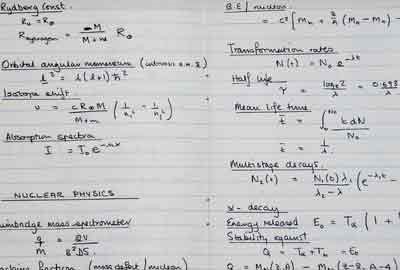 Rydberg Const.
R∞ = R∞
R hydrogen = M / M+m R∞
Orbital angular momentum
l² = l(l+1)ħ²
Isotope shift
ν = cR∞M / M+m (1/n₁² - 1/n₂²)
Absorption spectra
I = I₀e^-μx
NUCLEAR PHYSICS
mass spectrometer
q/m = 2V / B²D
fraction (mass defect / nucleon)
B.E / nucleon
= c² [Mn + Z/A (MH - Mn) -
Transformation rates
N(t) = N₀ e^-λt
Half life
τ = loge2 / λ = 0.693 / λ
Mean life time
t̄ = ∫ t dN / N₀
t̄ = 1/λ
Multistage decays
N₂(t) = N₁(0)λ₁ / λ₂ - λ₁ (e^-λ₁t -
α - decay
Energy released E₀ = Tα (1 +
Stability against
Q = Tα + Th = E₀
Q = M(Z,A) - M(Z-2, A-4)